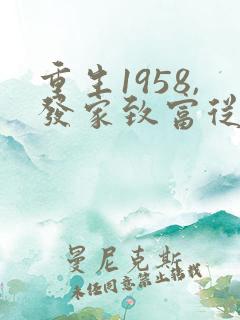 重生1958,
發家致富從
曼尼克斯
未任同意禁止轉載